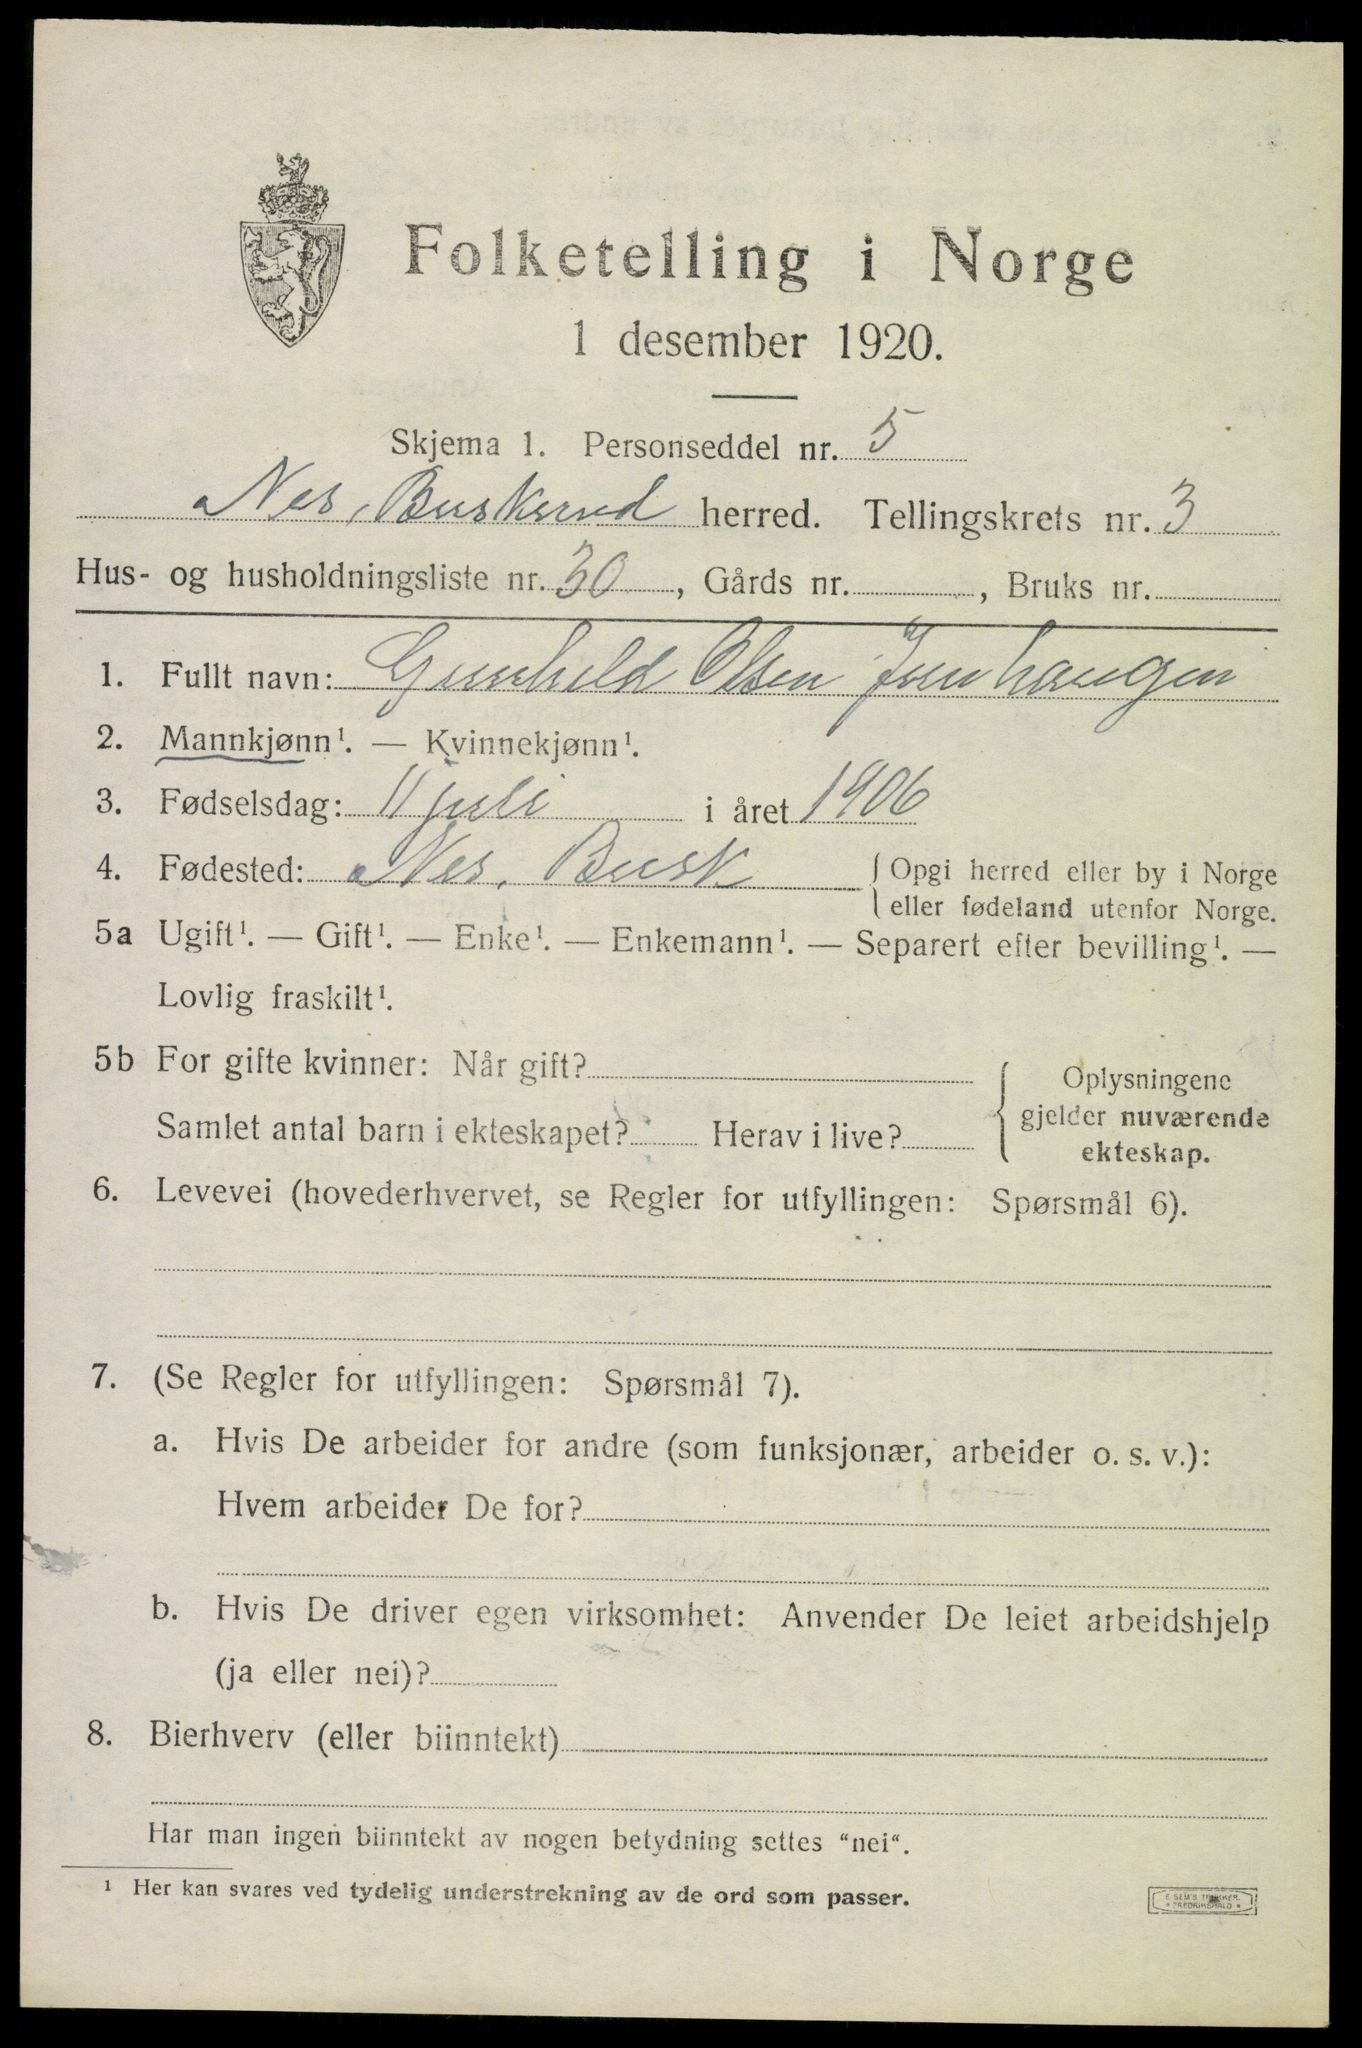 Folketelling i Norge
1 desember 1920.
Skjema 1. Personseddel nr. 5
Nes, Buskerud herred. Tellingskrets nr. 3
Hus- og husholdningsliste nr. 30, Gårds nr. , Bruks nr.
1. Fullt navn: Gunhild Olsen
2. Mannkjønn¹. — Kvinnekjønn¹.
3. Fødselsdag: 11 juli i året 1906
4. Fødested: Nes, Busk { Opgi herred eller by i Norge
eller fødeland utenfor Norge.
5a Ugift¹. — Gift¹. — Enke¹. — Enkemann¹. — Separert efter bevilling¹. —
Lovlig fraskilt¹.
5b For gifte kvinner: Når gift? { Oplysningene
Samlet antal barn i ekteskapet? Herav i live? gjelder nuværende
ekteskap.
6. Levevei (hovederhvervet, se Regler for utfyllingen: Spørsmål 6).
7. (Se Regler for utfyllingen: Spørsmål 7).
a. Hvis De arbeider for andre (som funksjonær, arbeider o. s. v.):
Hvem arbeider De for?
b. Hvis De driver egen virksomhet: Anvender De leiet arbeidshjelp
(ja eller nei)?
8. Bierhverv (eller biinntekt)
Har man ingen biinntekt av nogen betydning settes "nei".
¹ Her kan svares ved tydelig understrekning av de ord som passer.
E. SEM'S TRYKKERI.
* FREDRIKSHALD *